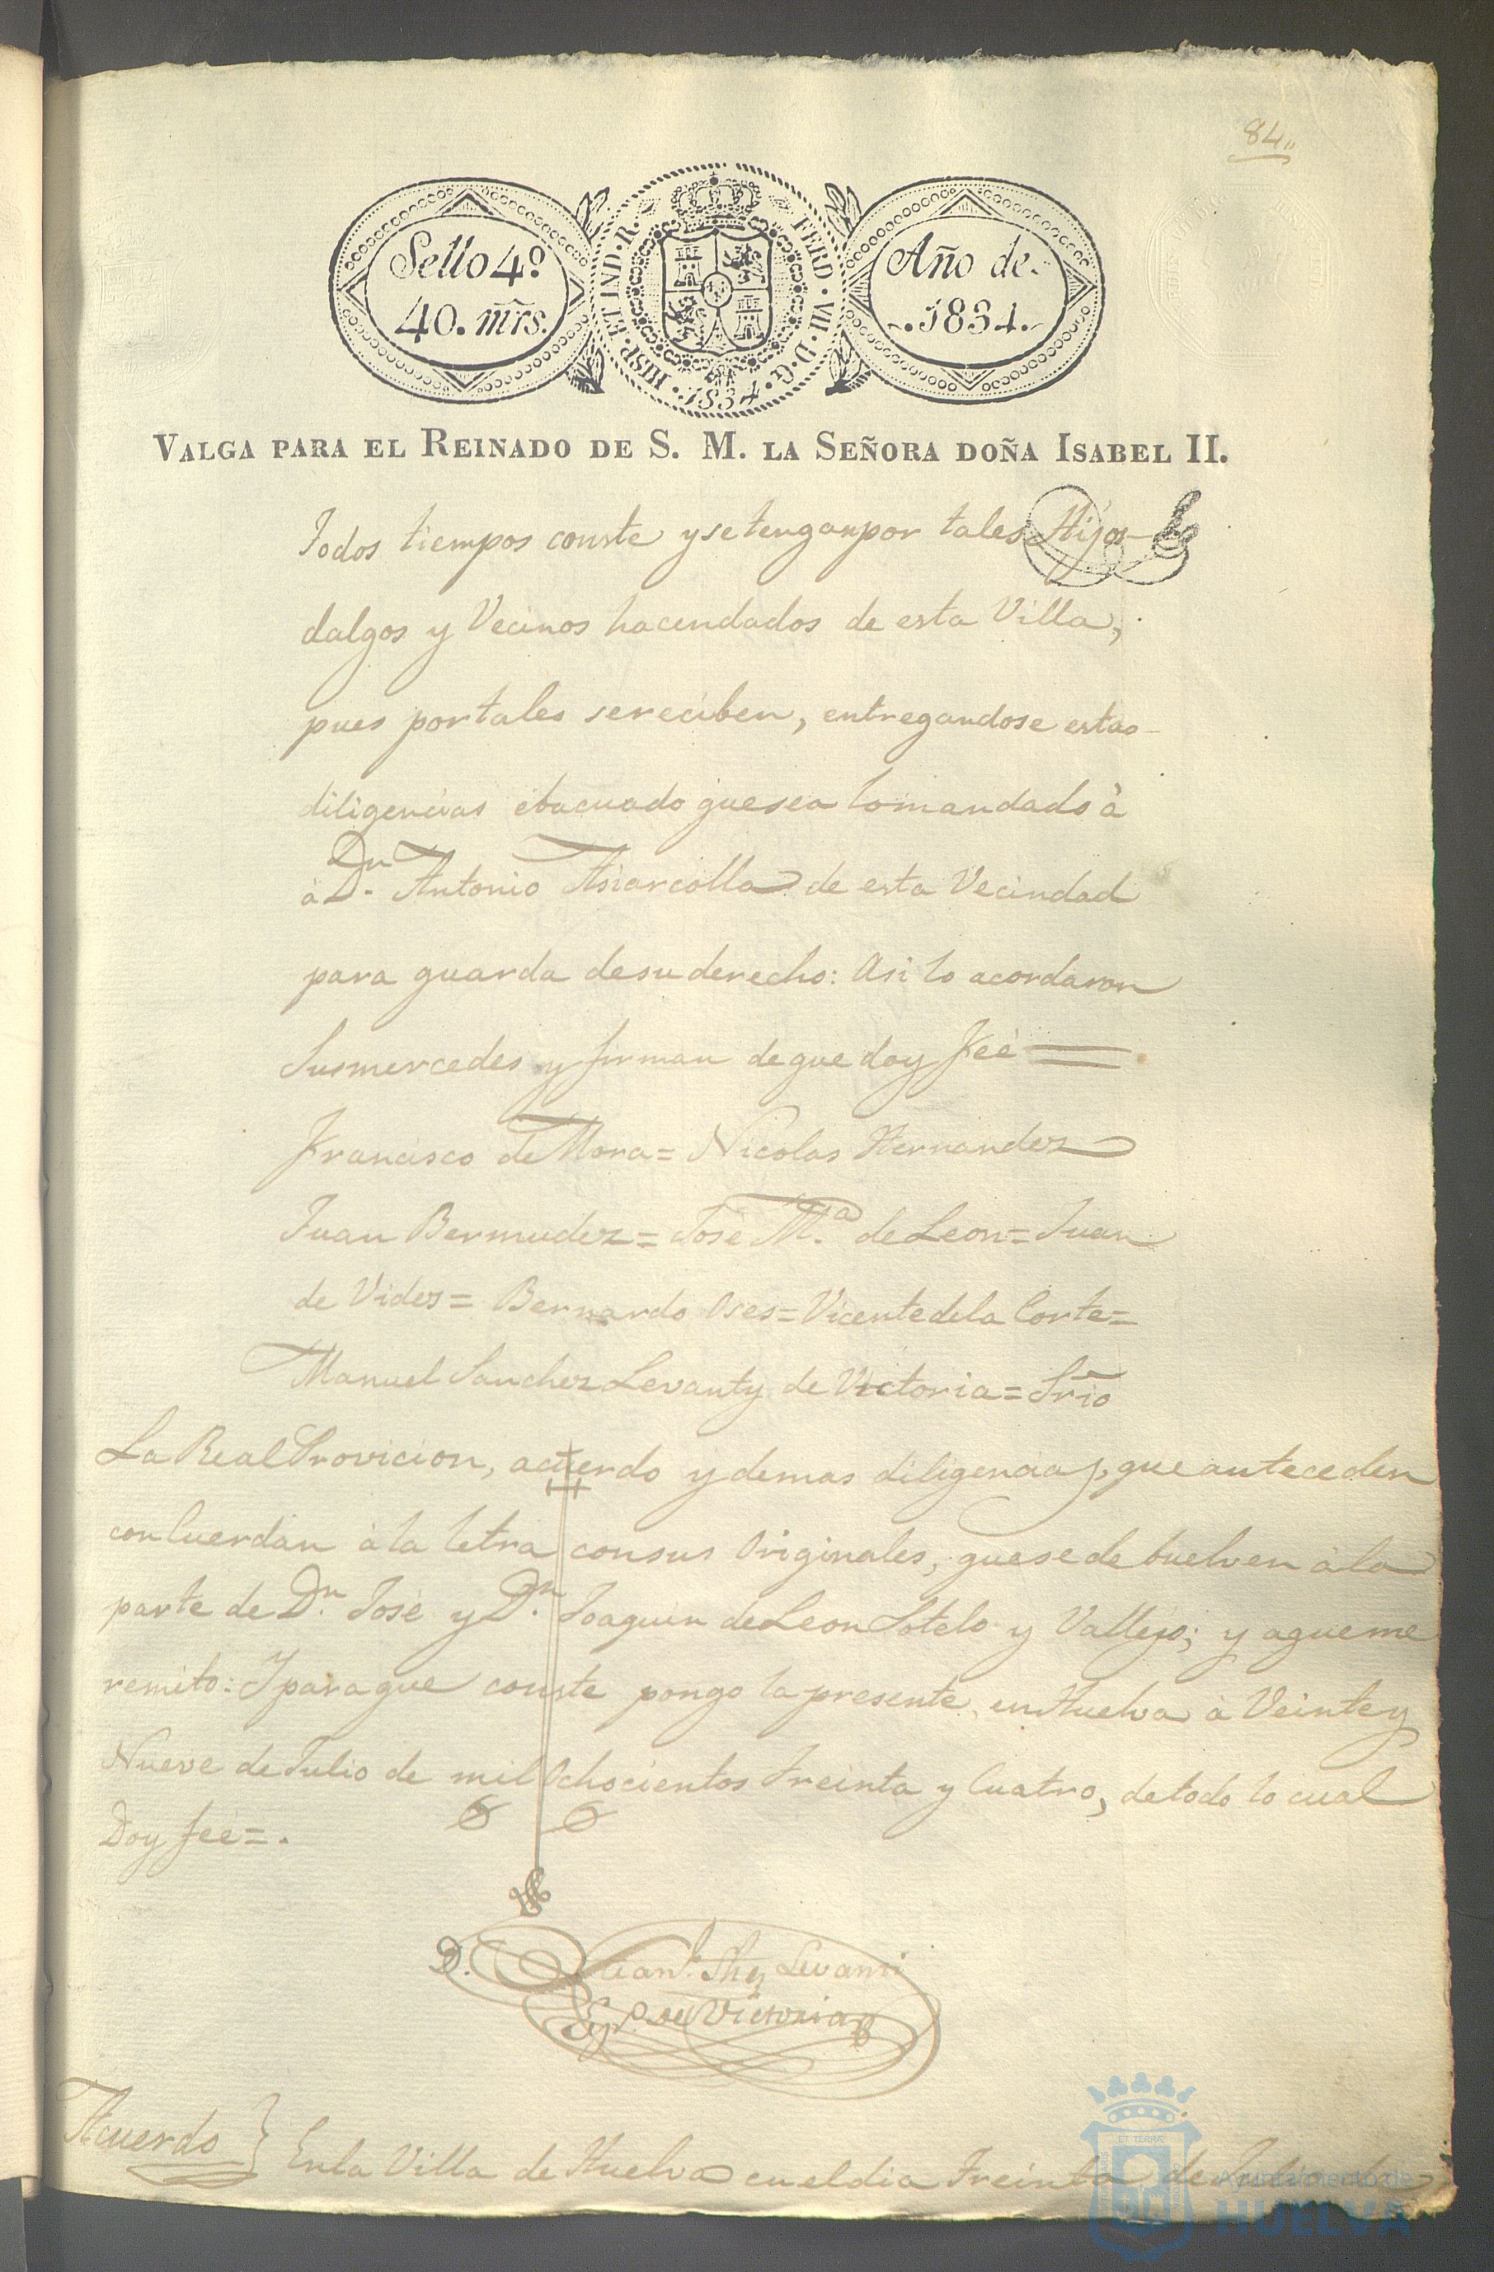 84,,
Sello 4º
40. mrs.
HISP. ET IND. R. FERD. VII. D. G. 1834.
Año de
1834.
VALGA PARA EL REINADO DE S. M. LA SEÑORA DOÑA ISABEL II.
Todos tiempos conste y se tengan por tales Hijos-
dalgos y Vecinos hacendados de esta Villa,
pues por tales se reciben, entregandose estas
diligencias ebacuado que sea lo mandado à
à Dn. Antonio de esta Vecindad
para guarda de su derecho: Asi lo acordaron
Sus mercedes y firman de que doy Feè =
Francisco de Mora = Nicolas Hernandez
Juan Bermudez = Josè M.ª de Leon = Juan
de Vides = Bernardo Oses = Vicente de la Corte =
Manuel Sanchez Levanty de Victoria = Srio
La Real Provicion, acuerdo y demas diligencias, que anteceden
conCuerdan à la letra con sus Originales, que se debuelven à la
parte de Dn. Josè y Dn. Joaquin de Leon Sotelo y Vallejo; y a que me
remito: Y para que conste pongo la presente en Huelva à Veinte y
Nueve de Julio de mil Ochocientos Treinta y Cuatro, de todo lo cual
Doy feè =.
D. Man.l Shz Levanti
de Victoria
Acuerdo } En la Villa de Huelva en el dia Treinta de Julio de
ET TERRÆ
Ayuntamiento de
HUELVA